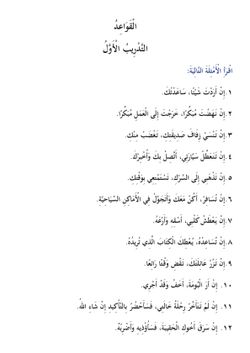 الْقَوَاعِدُ
التَّدْرِيبُ الْأَوَّلُ
اقْرَأِ الْأَمْثِلَةَ التَّالِيَةَ:
١. إِنْ أَرَدْتَ شَيْئًا، سَاعَدْتُكَ.
٢. إِنْ نَهَضْتَ مُبَكِّرًا، خَرَجْتَ إِلَى الْعَمَلِ مُبَكِّرًا.
٣. إِنْ تَنْسَيْ زِفَافَ صَدِيقَتِكِ، تَغْضَبْ مِنْكِ.
٤. إِنْ تَتَعَطَّلْ سَيَّارَتِي، أَتَّصِلْ بِكَ وَأُخْبِرْكَ.
٥. إِنْ تَذْهَبِي إِلَى السِّرْكِ، تَسْتَمْتِعِي بِوَقْتِكِ.
٦. إِنْ تُسَافِرْ، أَكُنْ مَعَكَ وَأَتَجَوَّلْ فِي الْأَمَاكِنِ السِّيَاحِيَّةِ.
٧. إِنْ يَعْطَشْ كَلْبِي، أَسْقِهِ وَأَرْعَهُ.
٨. إِنْ تُسَاعِدْهُ، يُعْطِكَ الْكِتَابَ الَّذِي تُرِيدُهُ.
٩. إِنْ تَزُرْ عَائِلَتَكَ، تَقْضِ وَقْتًا رَائِعًا.
١٠. إِنْ أَرَ الْبُومَةَ، أَخَفْ وَقَدْ أَجْرِي.
١١. إِنْ لَمْ تَتَأَخَّرْ رِحْلَةُ خَالَتِي، فَسَأَحْضُرُ بِالتَّأْكِيدِ إِنْ شَاءَ اللهُ.
١٢. إِنْ سَرَقَ أَخُوكِ الْحَقِيبَةَ، فَسَأُؤْذِيهِ وَأَضْرِبُهُ.